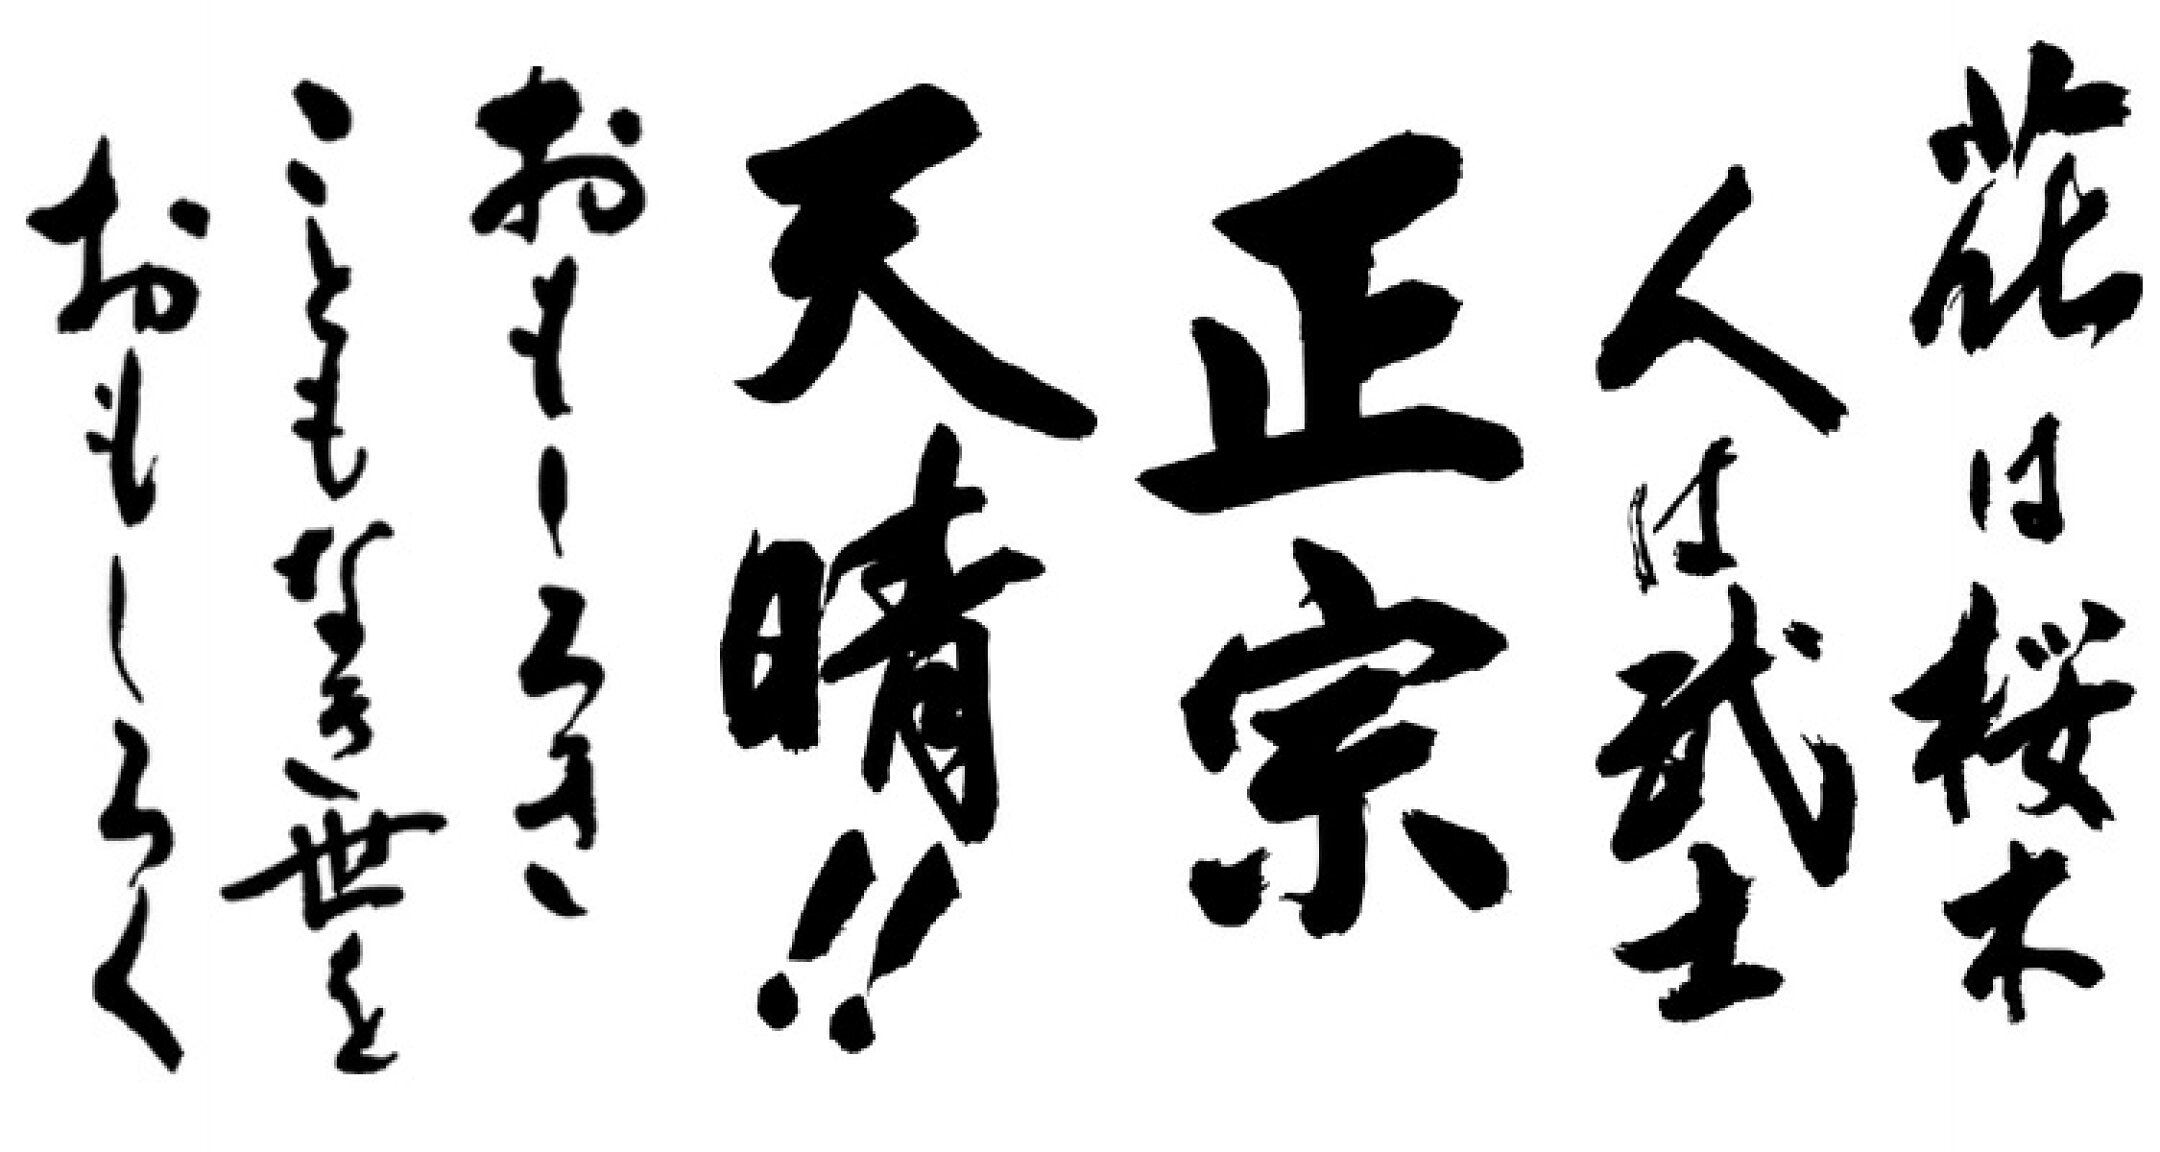 花は桜木
人は武士
正宗
天晴!!
おもしろき
こともなき世を
おもしろく